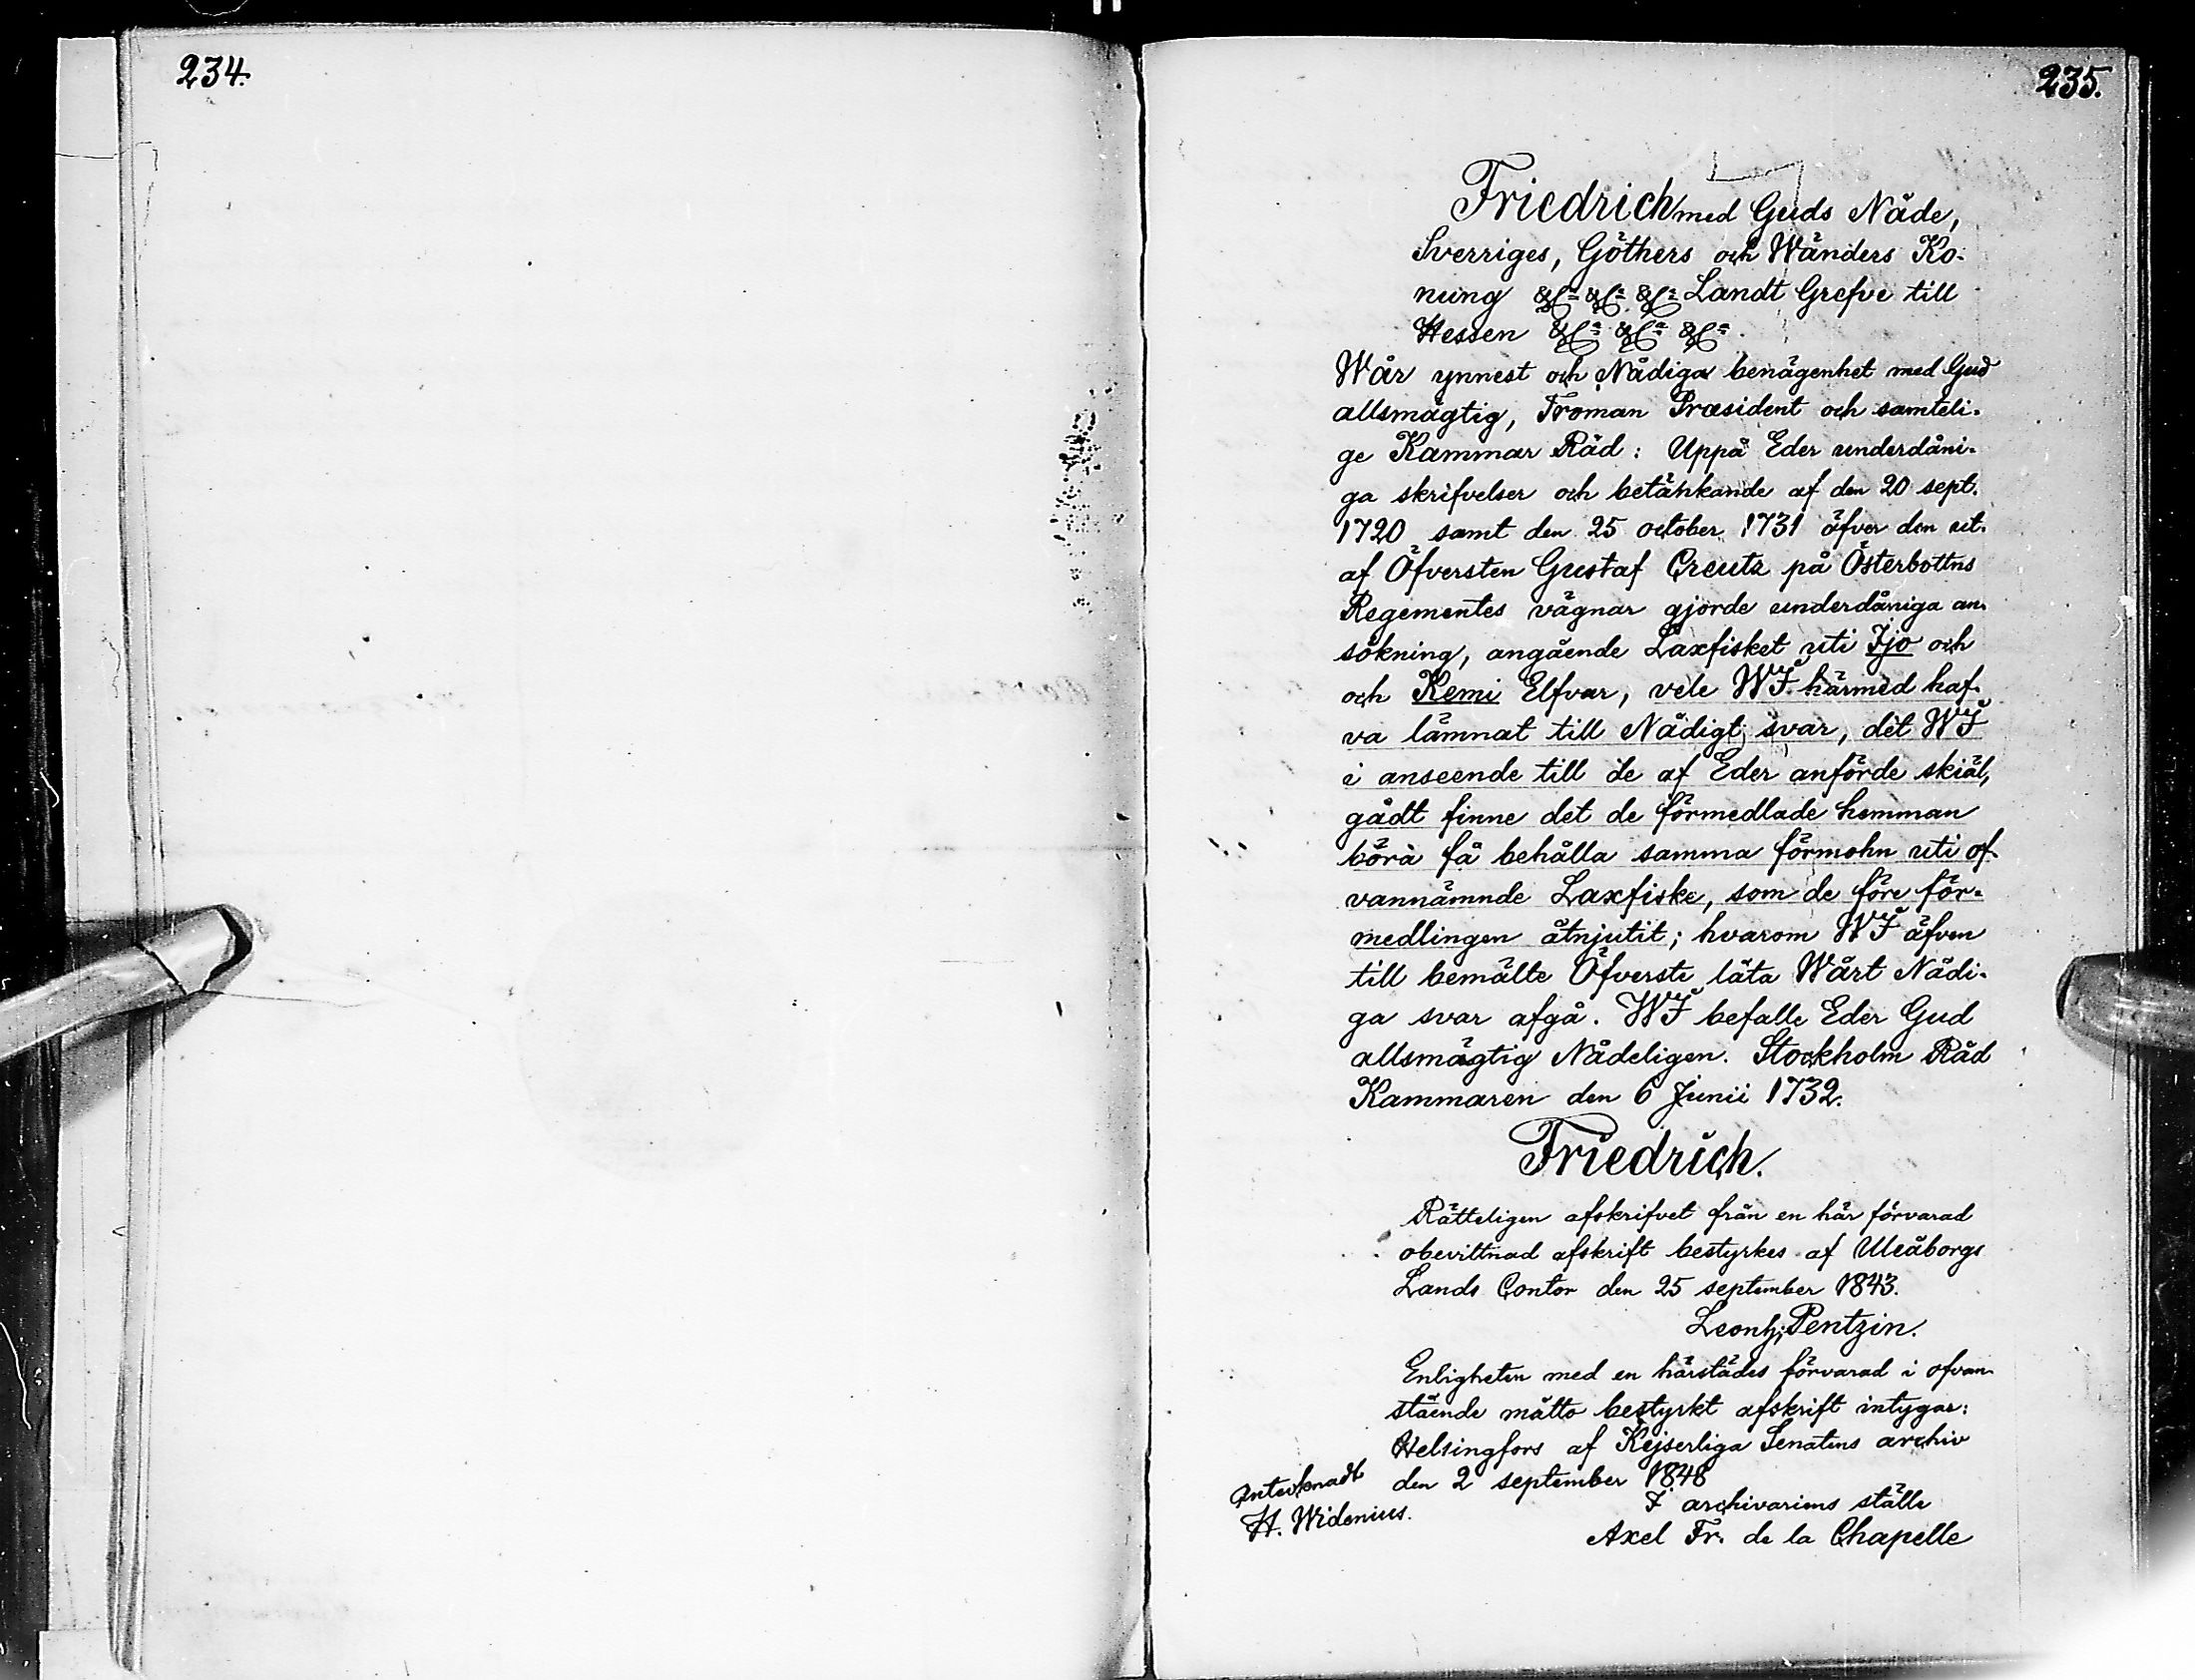 234.
235.
Friedrich med Guds Nåde,
Sverriges, Göthers och Wänders Ko-
nung &c: &c: &c: Landt Grefve till
Hessen &c: &c: &c:
Wår ynnest och Nådiga benägenhet med Gud
allsmägtig, Troman Præsident och samteli-
ge Kammar Råd: Uppå Eder underdåni-
ga skrifvelser och betänkande af den 20 sept.
1720 samt den 25 october 1731 äfver den ut-
af Öfversten Gustaf Creutz på Österbottns
Regementes vägnar gjorde underdåniga an-
sökning, angående Laxfisket uti Ijo och
och Kemi Elfvar, vele WĬ härmed haf-
va lämnat till Nådigt svar, det WĬ
i anseende till de af Eder anförde skiäl,
gådt finne det de förmedlade hemman
böra få behålla samma förmohn uti of-
vannämnde Laxfiske, som de före för-
medlingen åtnjutit; hvarom WĬ äfven
till bemälte Öfverste låta Wårt Nådi-
ga svar afgå. WĬ befalle Eder Gud
allsmägtig Nådeligen. Stockholm Råd
Kammaren den 6 Junii 1732.
Friedrich.
Rätteligen afskrifvet från en här förvarad
obevittnad afskrift bestyrkes af Uleåborgs
Lands Contor den 25 september 1843.
Leonh; Pentzin.
Enligheten med en härstädes förvarad i ofvan-
stående måtto bestyrkt afskrift intygar:
Helsingfors af Kejserliga Senatens archiv
den 2 september 1848
Antecknadt
H. Widenius.
I archivariens ställe
Axel Fr. de la Chapelle